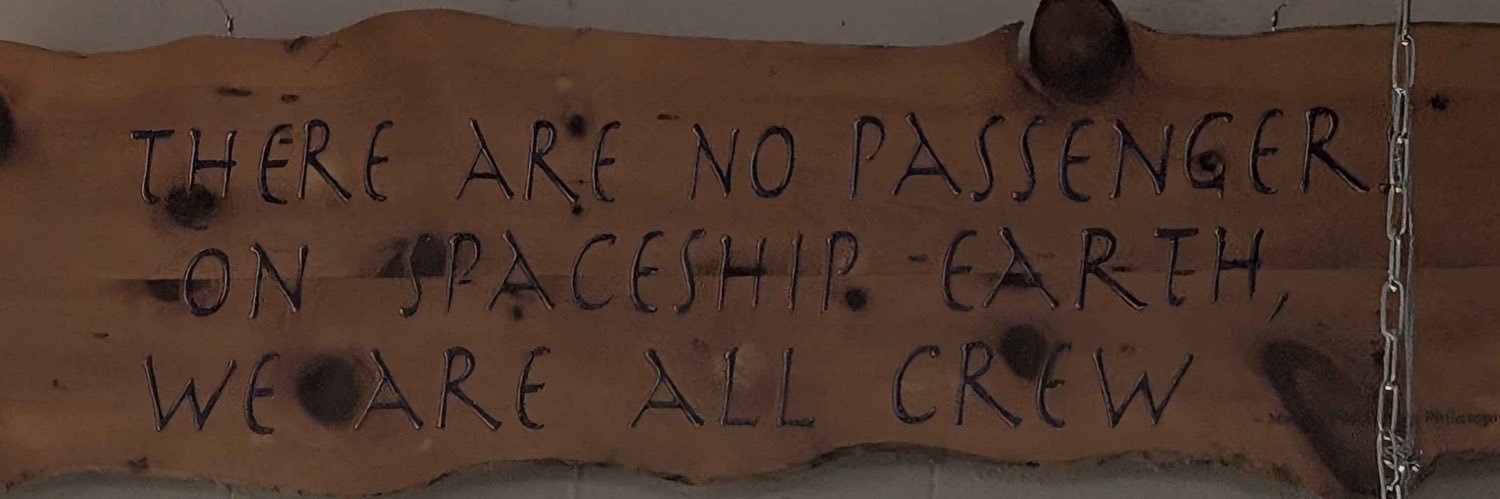 THERE ARE NO PASSENGER
ON SPACESHIP EARTH,
WE ARE ALL CREW